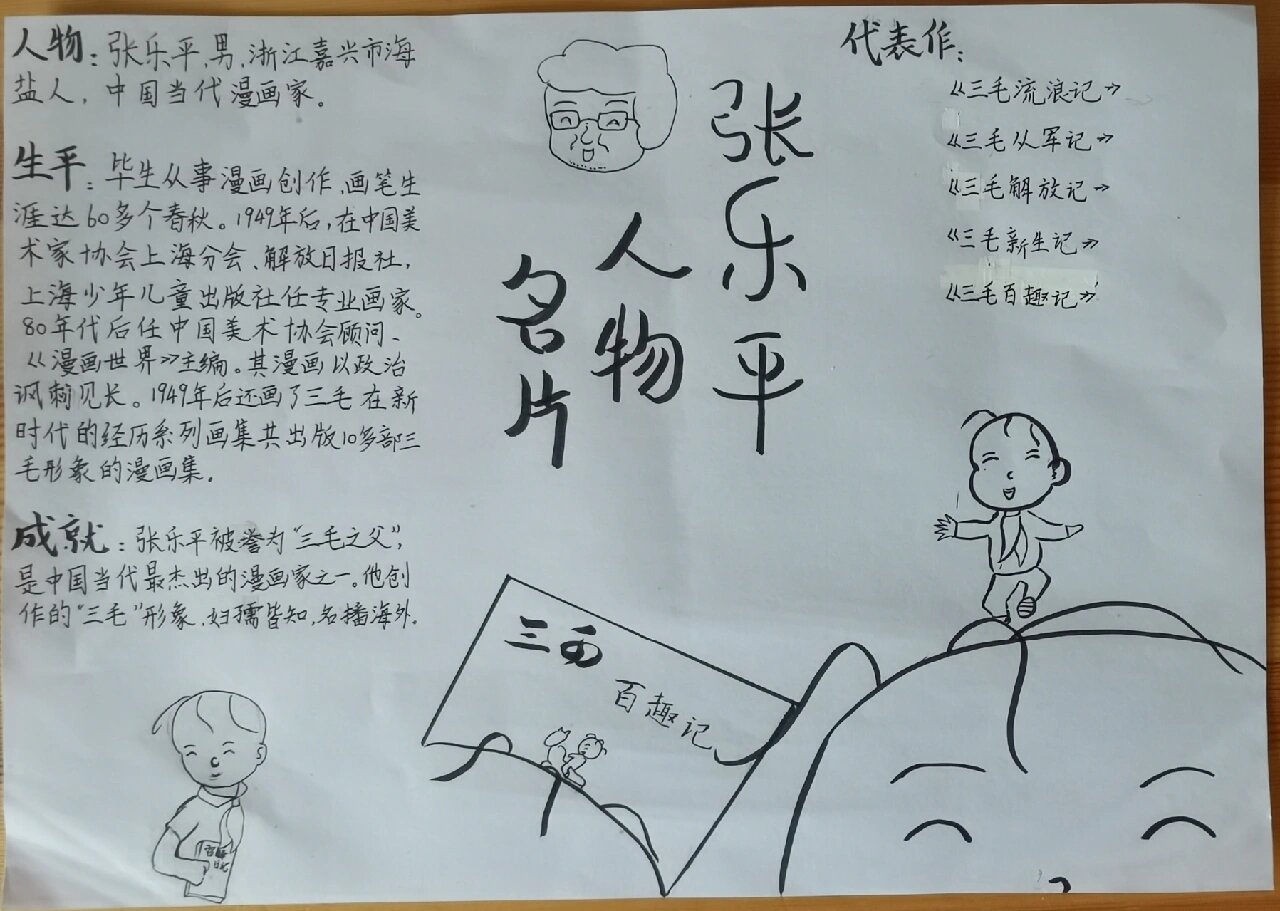 人物：张乐平，男，浙江嘉兴市海
盐人，中国当代漫画家。
生平：毕生从事漫画创作，画笔生
涯达60多个春秋。1949年后，在中国美
术家协会上海分会、解放日报社，
上海少年儿童出版社任专业画家。
80年代后任中国美术协会顾问、
《漫画世界》主编。其漫画以政治
讽刺见长。1949年后还画了三毛在新
时代的经历系列画集共出版10多部三
毛形象的漫画集。
成就：张乐平被誉为“三毛之父”，
是中国当代最杰出的漫画家之一。他创
作的“三毛”形象，妇孺皆知，名播海外。
张乐平
人物
名片
代表作：
《三毛流浪记》
《三毛从军记》
《三毛解放记》
《三毛新生记》
《三毛百趣记》
三毛
百趣记